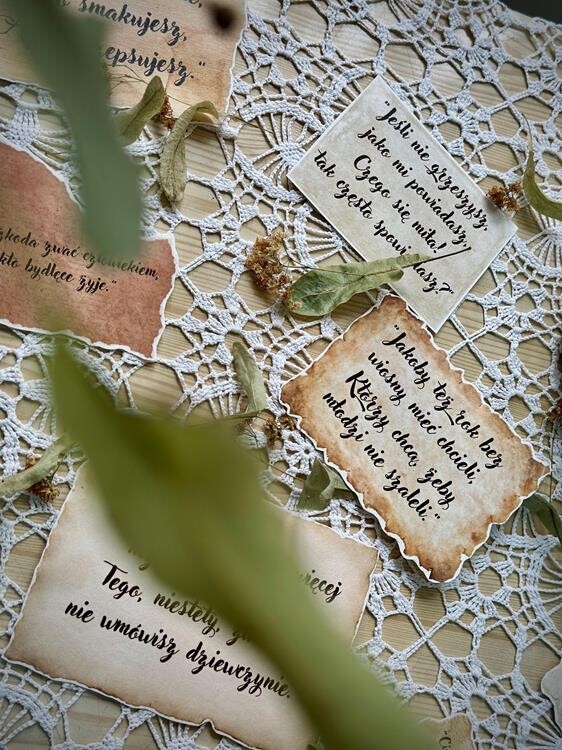 smakujesz,
epsujesz."
"Jeśli nie grzeszysz,
jako mi powiadasz,
Czego się miła!
tak często spowi dasz?"
szkoda zwać człowiekiem,
kto bydlęce żyje."
"Jakoby też rok bez
wiosny mieć chcieli,
Którzy chcą, żeby
młodzi nie szaleli."
ięcej
Tego, niestety,
nie wmówisz dziewczynie.